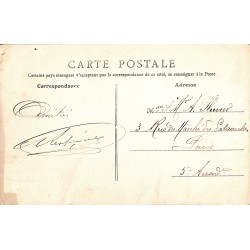 CARTE POSTALE
Certains pays étrangers n'acceptant pas la correspondance de ce côté, se renseigner à la Poste
Correspondance
Adresse
Amitiés
3 Rue du Marché des Patriarches
Paris
5e